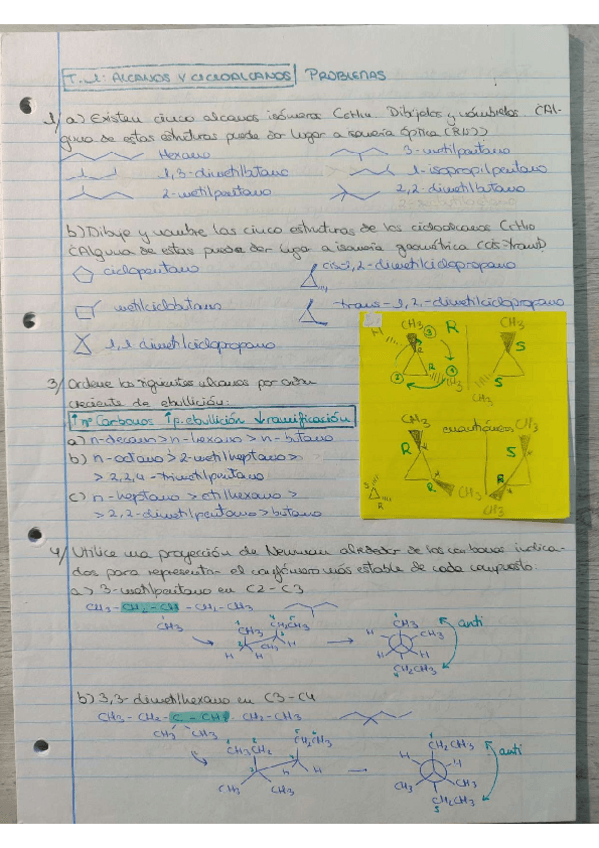 T.1: ALCANOS Y CICLOALCANOS PROBLEMAS
1/ a) Existen cinco alcanos isómeros C6H14. Dibújalos y nómbrelos ¿Al-
guna de estas estructuras puede dar lugar a isomería óptica (R/S)?
Hexano
3-metilpentano
1,3-dimetilbutano
1-isopropilpentano
2-metilpentano
2,2-dimetilbutano
b) Dibuje y nombre las cinco estructuras de los cicloalcanos C5H10
¿Alguna de estas puede dar lugar a isomería geométrica (cis-trans)?
ciclopentano
cis-1,2-dimetilciclopropano
metilciclobutano
trans-1,2,-dimetilciclopropano
1,1 dimetilciclopropano
H CH3 3 R CH3
2 R 1 CH3 S S CH3
3/ Ordene los siguientes alcanos por orden
creciente de ebullición:
↑nº Carbonos ↑p.ebullición ↓ramificación
a) n-decano > n-hexano > n-butano
b) n-octano > 2-metilheptano >
> 2,2,4-trimetilpentano
c) n-heptano > etilhexano >
> 2,2-dimetilpentano > butano
CH3 enantiómeros CH3
R S
R CH3 S CH3
S R
4/ Utilice una proyección de Newman alrededor de los carbonos indica-
dos para representar el confórmero más estable de cada compuesto:
a) 3-metilpentano en C2-C3
CH3-CH2-CH-CH2-CH3
CH3
CH3 CH2CH3 H H CH3 H
CH3 H CH3 H H CH2CH3 anti
b) 3,3-dimetilhexano en C3-C4
CH3-CH2-C-CH2-CH2-CH3
CH3 CH3
CH3CH2 CH2CH3 H H CH3 CH3
CH2CH3 H H CH3 CH3 CH2CH3 anti